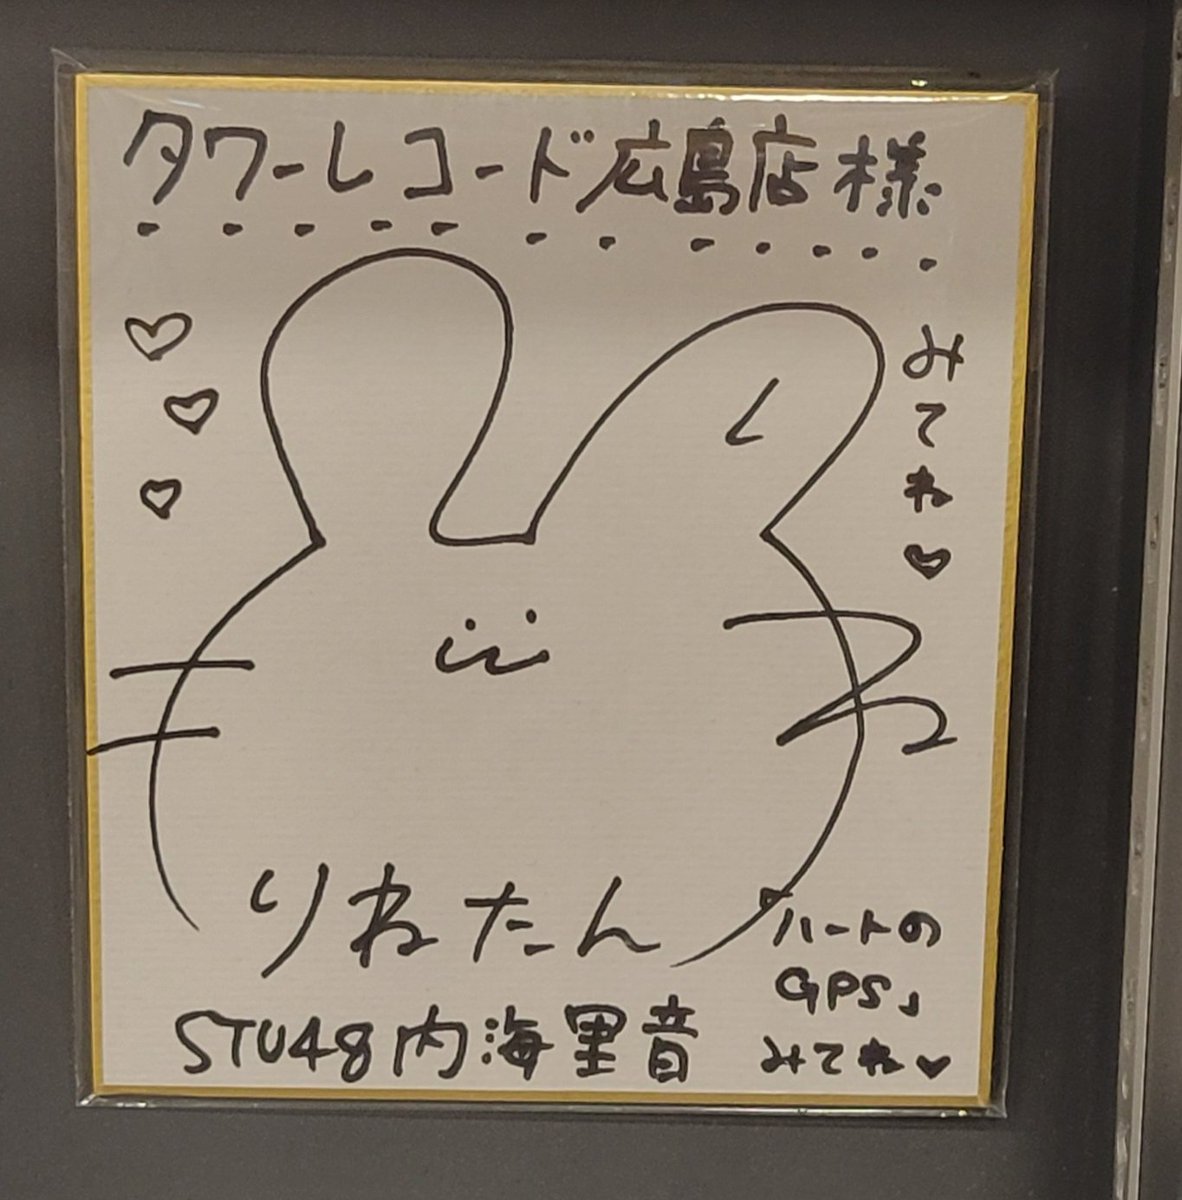 タワーレコード広島店様
みてね♡
りねたん
STU48内海里音
「ハートの
GPS」
みてね♥